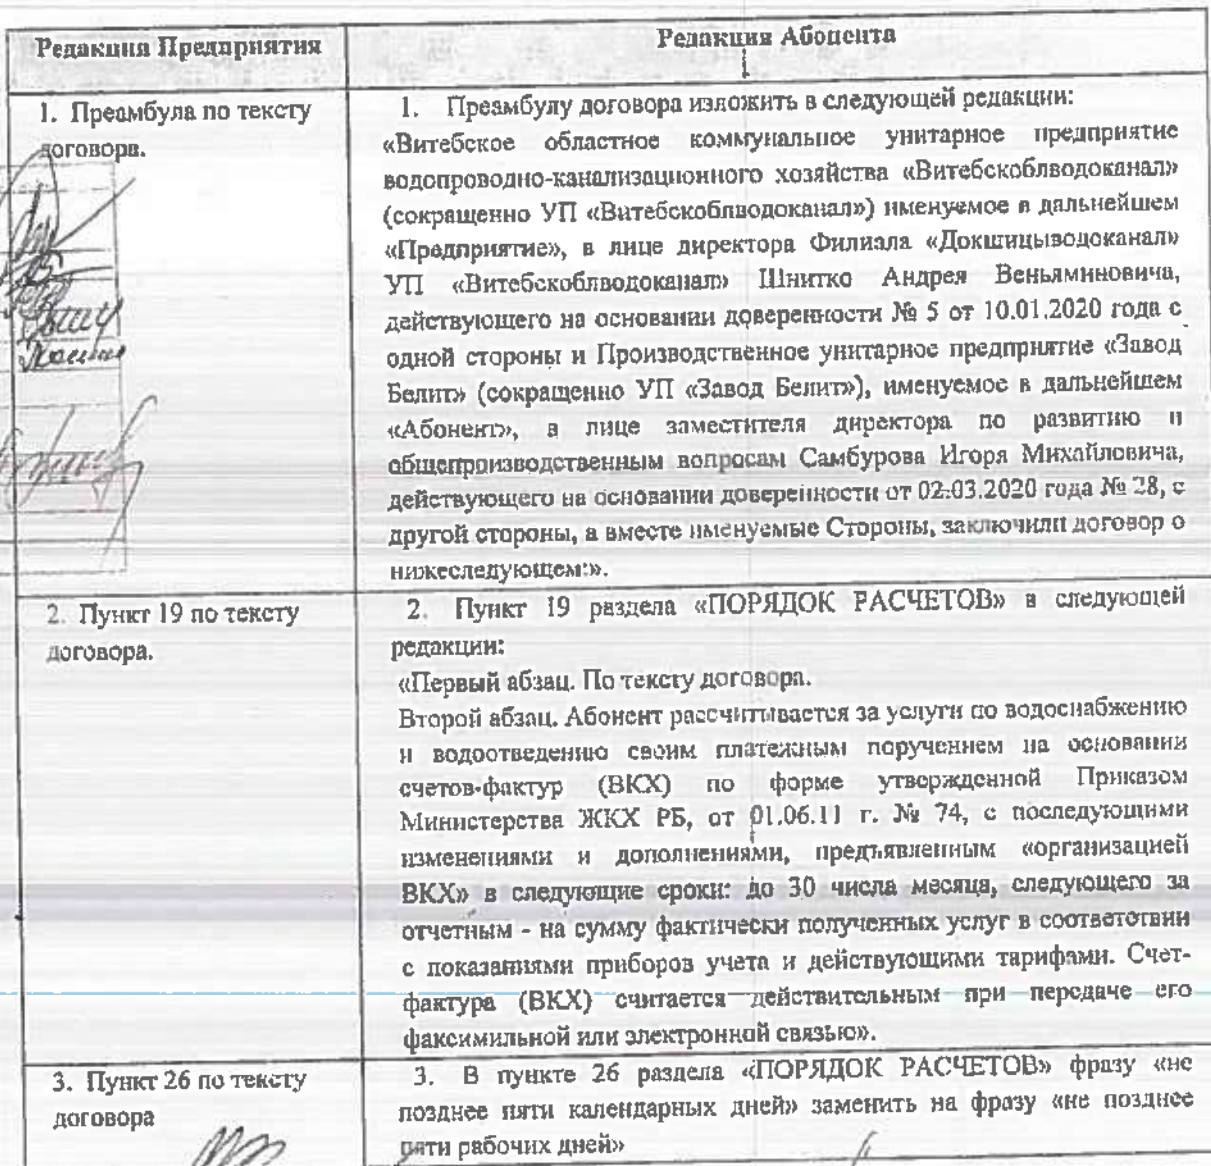 Редакция Предприятия
Редакция Абонента
1. Преамбула по тексту
договора.
1. Преамбулу договора изложить в следующей редакции:
«Витебское областное коммунальное унитарное предприятие
водопроводно-канализационного хозяйства «Витебскоблводоканал»
(сокращенно УП «Витебскоблводоканал») именуемое в дальнейшем
«Предприятие», в лице директора Филиала «Докшицыводоканал»
УП «Витебскоблводоканал» Шнитко Андрея Веньяминовича,
действующего на основании доверенности № 5 от 10.01.2020 года с
одной стороны и Производственное унитарное предприятие «Завод
Белит» (сокращенно УП «Завод Белит»), именуемое в дальнейшем
«Абонент», в лице заместителя директора по развитию и
общепроизводственным вопросам Самбурова Игоря Михайловича,
действующего на основании доверенности от 02.03.2020 года № 28, с
другой стороны, а вместе именуемые Стороны, заключили договор о
нижеследующем:».
2. Пункт 19 по тексту
договора.
2. Пункт 19 раздела «ПОРЯДОК РАСЧЕТОВ» в следующей
редакции:
«Первый абзац. По тексту договора.
Второй абзац. Абонент рассчитывается за услуги по водоснабжению
и водоотведению своим платежным поручением на основании
счетов-фактур (ВКХ) по форме утвержденной Приказом
Министерства ЖКХ РБ, от 01.06.11 г. № 74, с последующими
изменениями и дополнениями, предъявленным «организацией
ВКХ» в следующие сроки: до 30 числа месяца, следующего за
отчетным - на сумму фактически полученных услуг в соответствии
с показаниями приборов учета и действующими тарифами. Счет-
фактура (ВКХ) считается действительным при передаче его
факсимильной или электронной связью».
3. Пункт 26 по тексту
договора
3. В пункте 26 раздела «ПОРЯДОК РАСЧЕТОВ» фразу «не
позднее пяти календарных дней» заменить на фразу «не позднее
пяти рабочих дней»